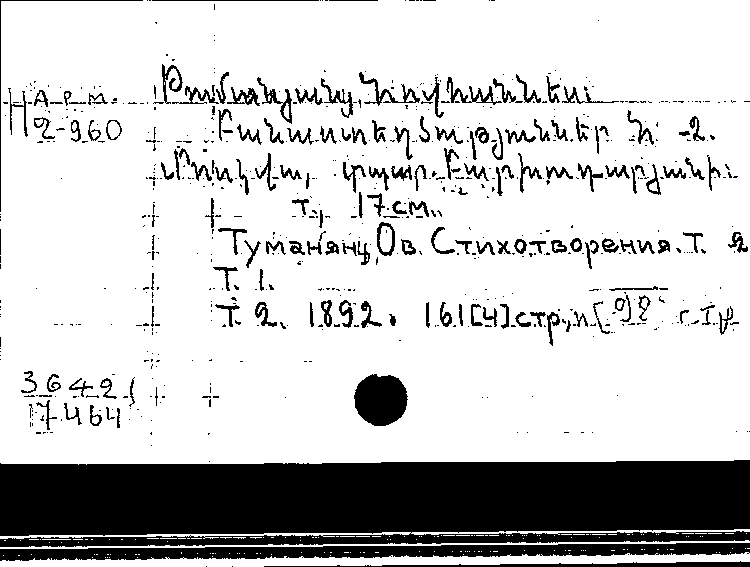 АРМ.
2-960
Թումանյանց, Հովհաննես:
Բանաստեղծություններ Հ. -2.
Մոսկվա, տպար. Բարխուդարյանի:
т., 17 см.
Туманянц, Ов. Стихотворения. Т. 2
Т. 1.
Т 2. 1892. 161[4] стр.,
36421
17464